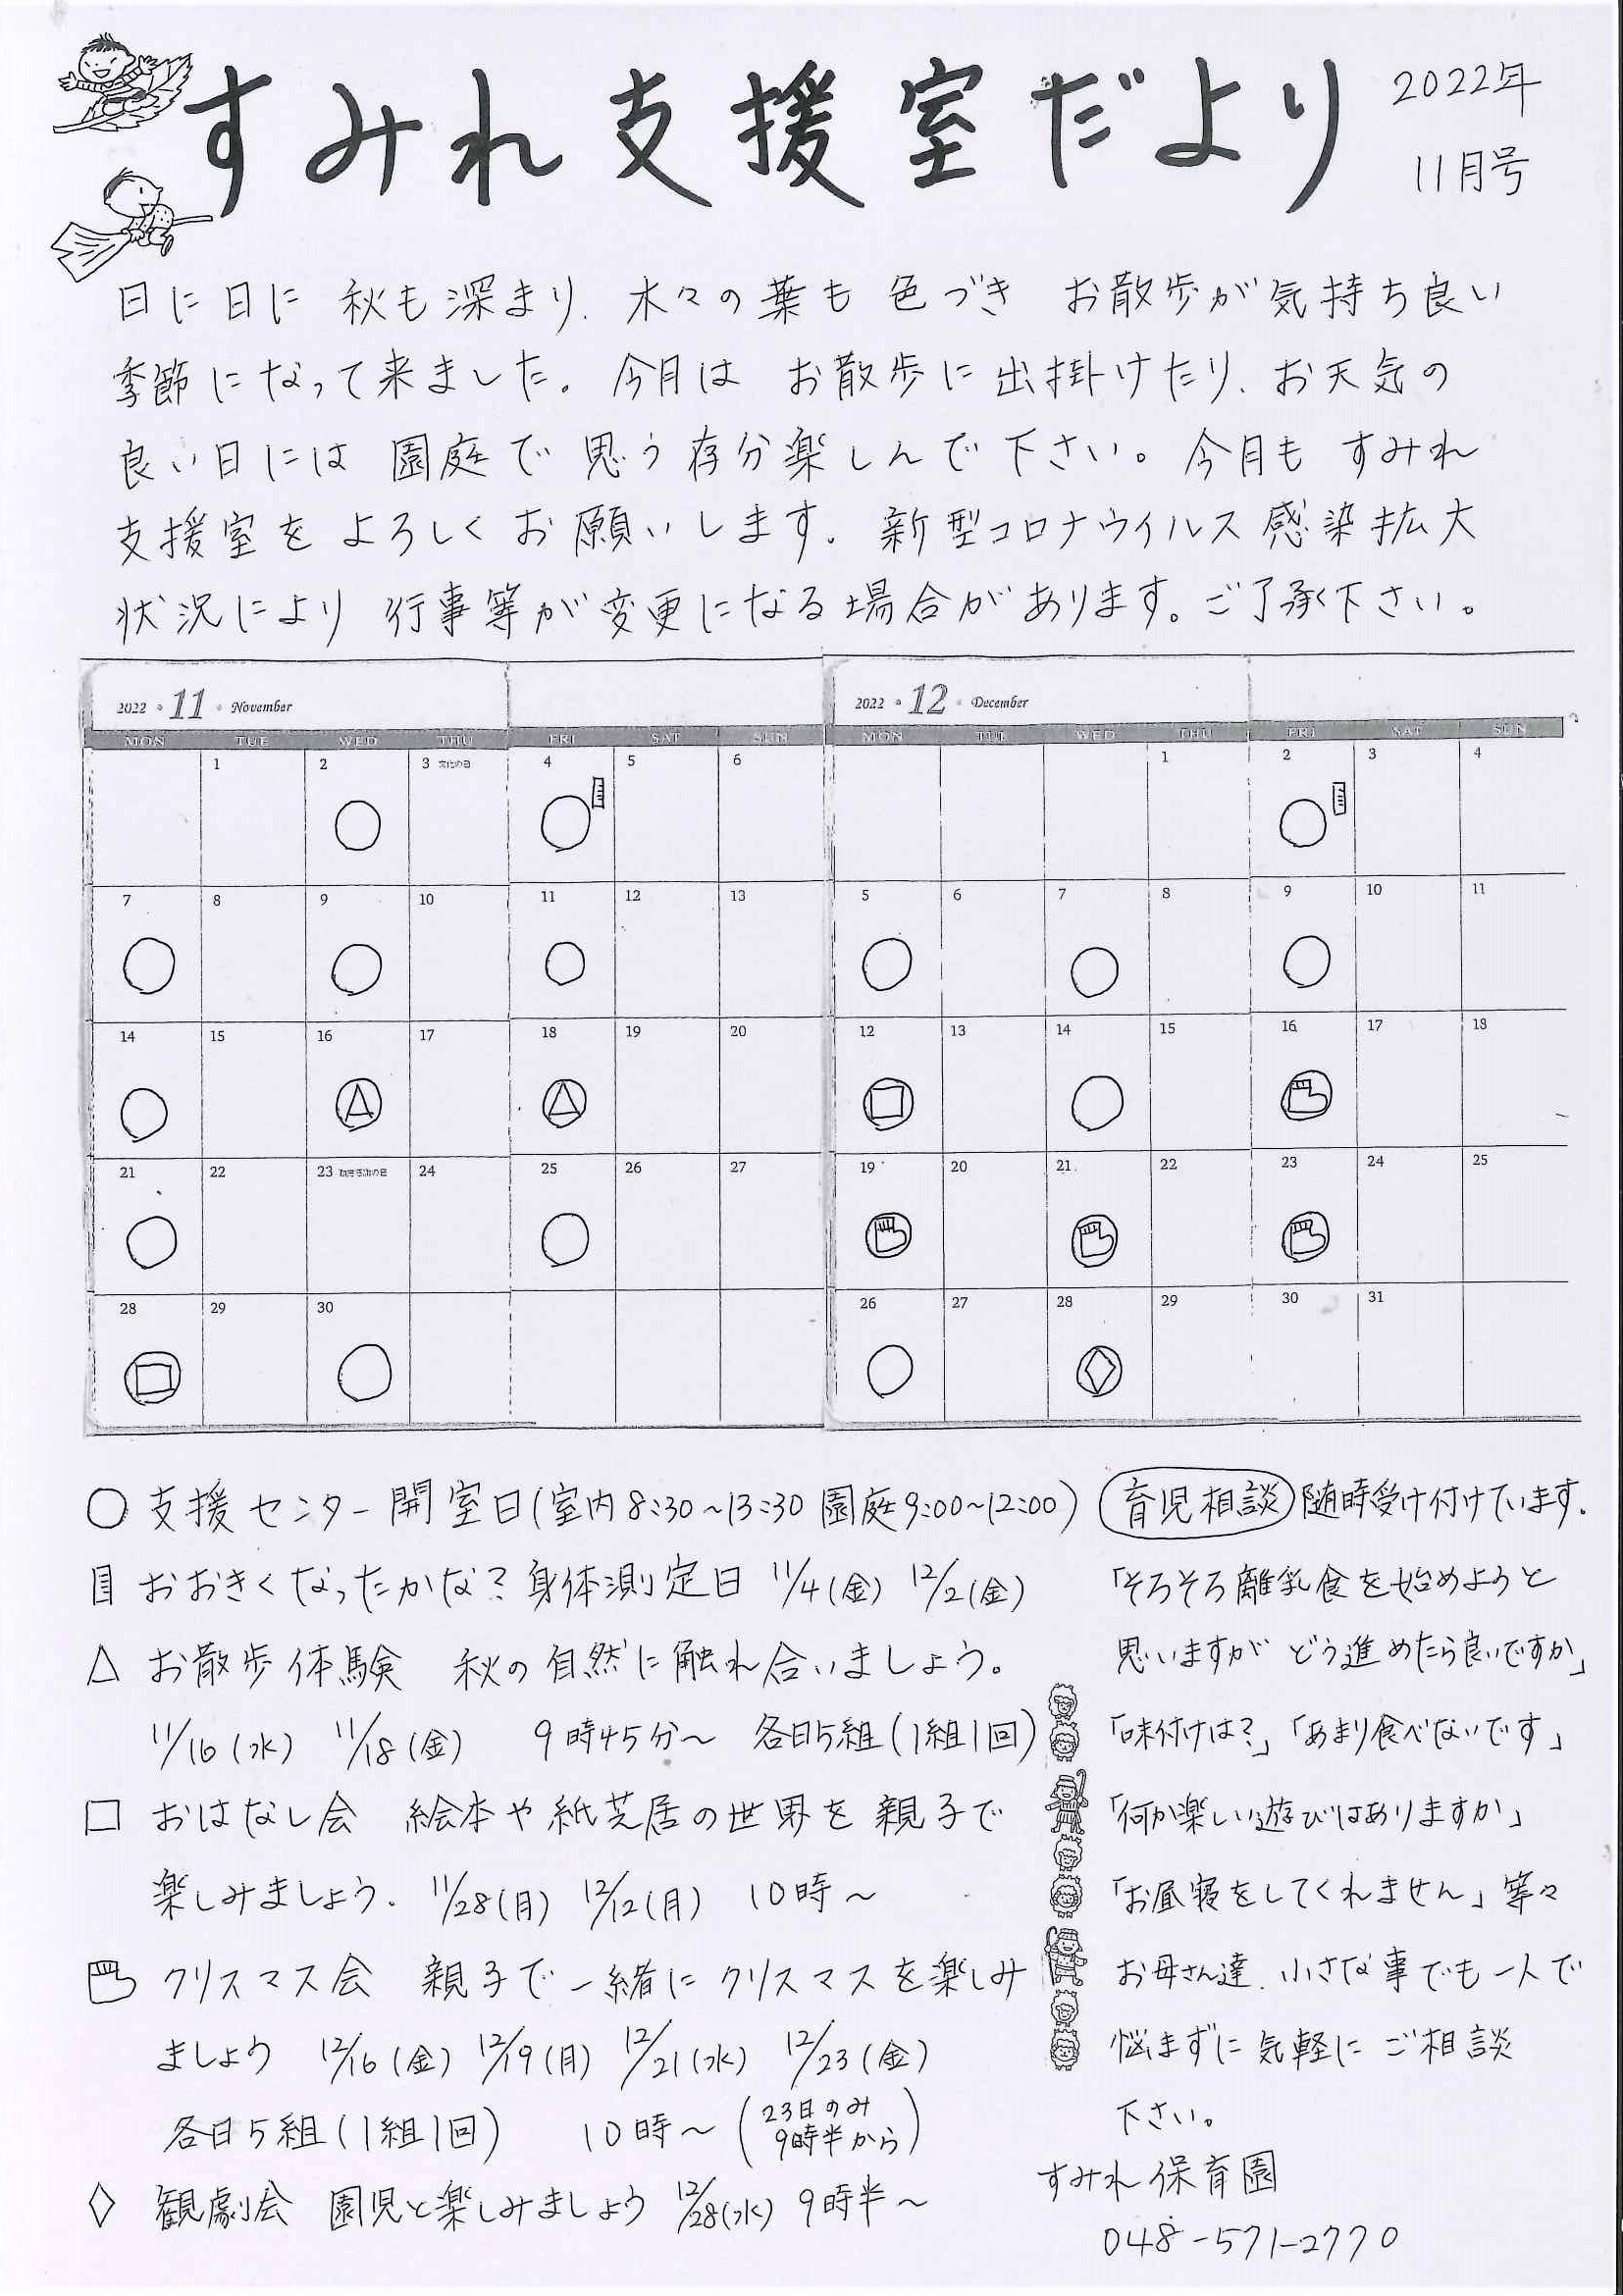 すみれ支援室だより
2022年
11月号
日に日に 秋も深まり、木々の葉も 色づき お散歩が気持ち良い
季節になって来ました。今月は お散歩に出掛けたり、お天気の
良い日には 園庭で 思う存分楽しんで下さい。今月も すみれ
支援室を よろしく お願いします。新型コロナウイルス感染拡大
状況により 行事等が変更になる場合があります。ご了承下さい。
2022 11 November
MON TUE WED THU FRI SAT SUN
1 2 3 文化の日 4 5 6
7 8 9 10 11 12 13
14 15 16 17 18 19 20
21 22 23 勤労感謝の日 24 25 26 27
28 29 30
2022 12 December
MON TUE WED THU FRI SAT SUN
1 2 3 4
5 6 7 8 9 10 11
12 13 14 15 16 17 18
19 20 21 22 23 24 25
26 27 28 29 30 31
○ 支援センター開室日(室内8:30~13:30 園庭9:00~12:00)
おおきくなったかな?身体測定日 11/4(金) 12/2(金)
△ お散歩体験 秋の自然に触れ合いましょう。
11/16(水) 11/18(金) 9時45分~ 各日5組(1組1回)
□ おはなし会 絵本や紙芝居の世界を親子で
楽しみましょう。11/28(月) 12/12(月) 10時~
クリスマス会 親子で一緒にクリスマスを楽しみ
ましょう 12/16(金) 12/19(月) 12/21(水) 12/23(金)
各日5組(1組1回) 10時~(23日のみ
9時半から)
◇ 観劇会 園児と楽しみましょう 12/28(水) 9時半~
育児相談 随時受け付けています。
「そろそろ離乳食を始めようと
思いますが どう進めたら良いですか」
「味付けは?」「あまり食べないです」
「何か楽しい遊びはありますか」
「お昼寝をしてくれません」等々
お母さん達、小さな事でも一人で
悩まずに気軽に ご相談
下さい。
すみれ保育園
048-571-2770